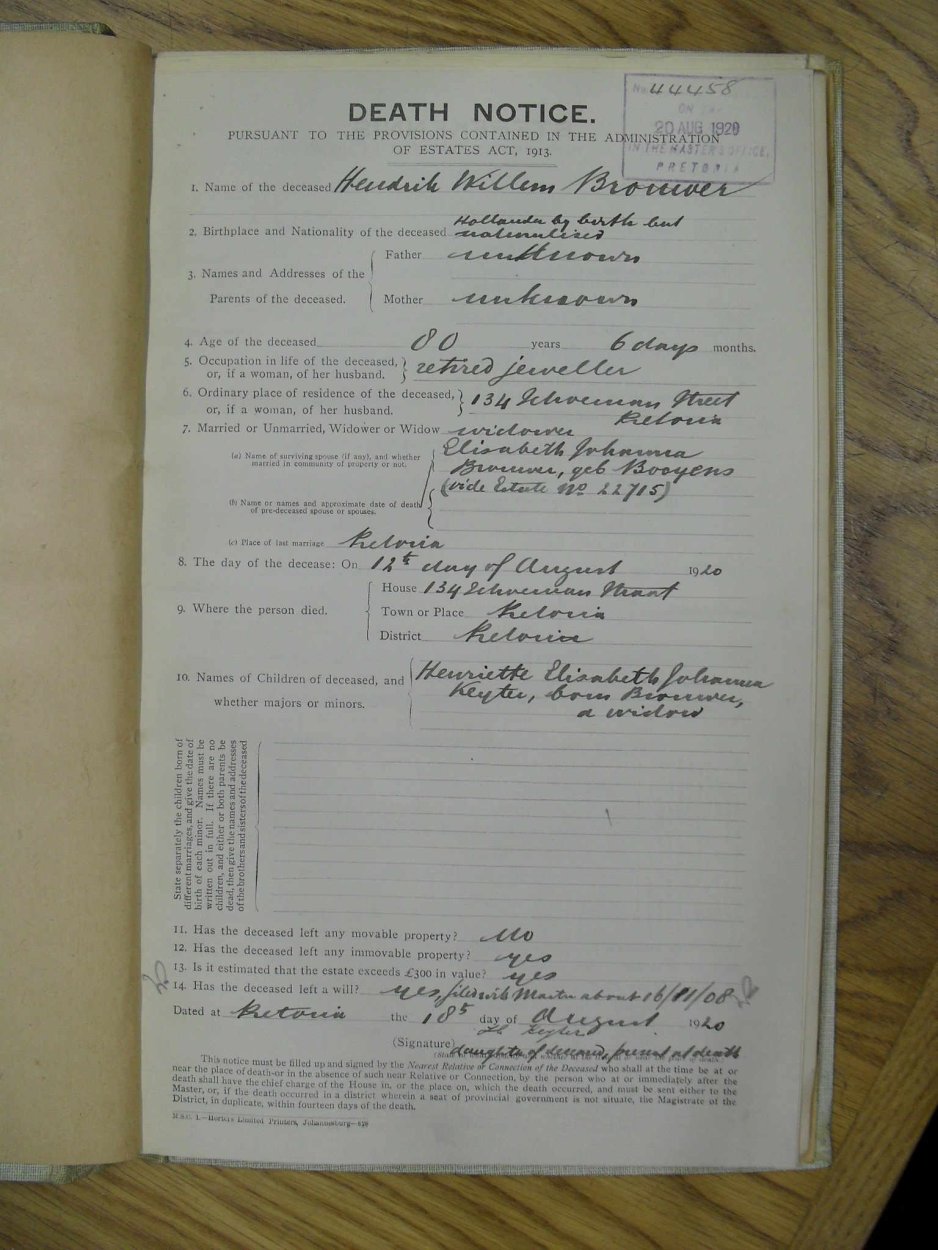 No 44458
ON THE
20 AUG 1920
IN THE MASTER'S OFFICE,
PRETORIA
DEATH NOTICE.
PURSUANT TO THE PROVISIONS CONTAINED IN THE ADMINISTRATION
OF ESTATES ACT, 1913.
1. Name of the deceased Hendrik Willem Brouwer
Hollander by birth but
2. Birthplace and Nationality of the deceased naturalised
Father unknown
3. Names and Addresses of the
Parents of the deceased.
Mother unknown
4. Age of the deceased 80 years 6 days months.
5. Occupation in life of the deceased,
or, if a woman, of her husband. retired jeweller
6. Ordinary place of residence of the deceased, 134 Schoeman Street
or, if a woman, of her husband. Pretoria
7. Married or Unmarried, Widower or Widow widower
(a) Name of surviving spouse (if any), and whether Elisabeth Johanna
married in community of property or not. Brouwer, geb Booyens
(vide Estate No 22715)
(b) Name or names and approximate date of death
of pre-deceased spouse or spouses.
(c) Place of last marriage Pretoria
8. The day of the decease: On 12th day of August 1920
House 134 Schoeman Street
9. Where the person died. Town or Place Pretoria
District Pretoria
10. Names of Children of deceased, and Henriette Elisabeth Johanna
Keyter, born Brouwer,
whether majors or minors. a widow
State separately the children born of
different marriages, and give the date of
birth of each minor. Names must be
written out in full. If there are no
children, and either or both parents be
dead, then give the names and addresses
of the brothers and sisters of the deceased
11. Has the deceased left any movable property? No
12. Has the deceased left any immovable property? yes
13. Is it estimated that the estate exceeds £300 in value? yes
14. Has the deceased left a will? yes, filed with Master about 16/11/08
Dated at Pretoria the 18th day of August 1920
Keyter
(Signature) daughter of deceased, present at death
This notice must be filled up and signed by the Nearest Relative or Connection of the Deceased who shall at the time be at or
near the place of death—or in the absence of such near Relative or Connection, by the person who at or immediately after the
death shall have the chief charge of the House in, or the place on, which the death occurred, and must be sent either to the
Master, or, if the death occurred in a district wherein a seat of provincial government is not situate, the Magistrate of the
District, in duplicate, within fourteen days of the death.
M.S.C. 1.—Hortors Limited Printers, Johannesburg—